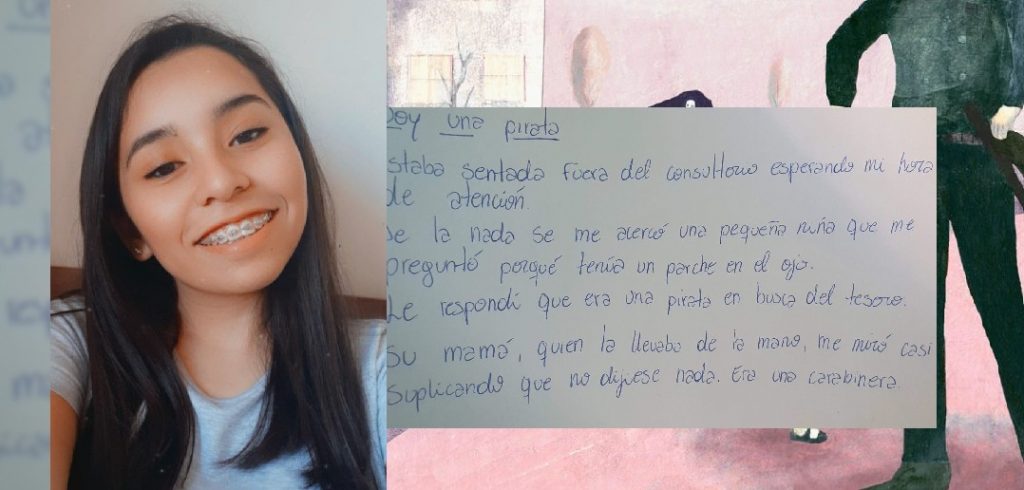 oy una pirata
staba sentada fuera del consultorio esperando mi hora
de atención.
De la nada se me acercó una pequeña niña que me
preguntó porqué tenía un parche en el ojo.
Le respondí que era una pirata en busca del tesoro.
Su mamá, quien la llevaba de la mano, me miró casi
suplicando que no dijiese nada. Era una carabinera.